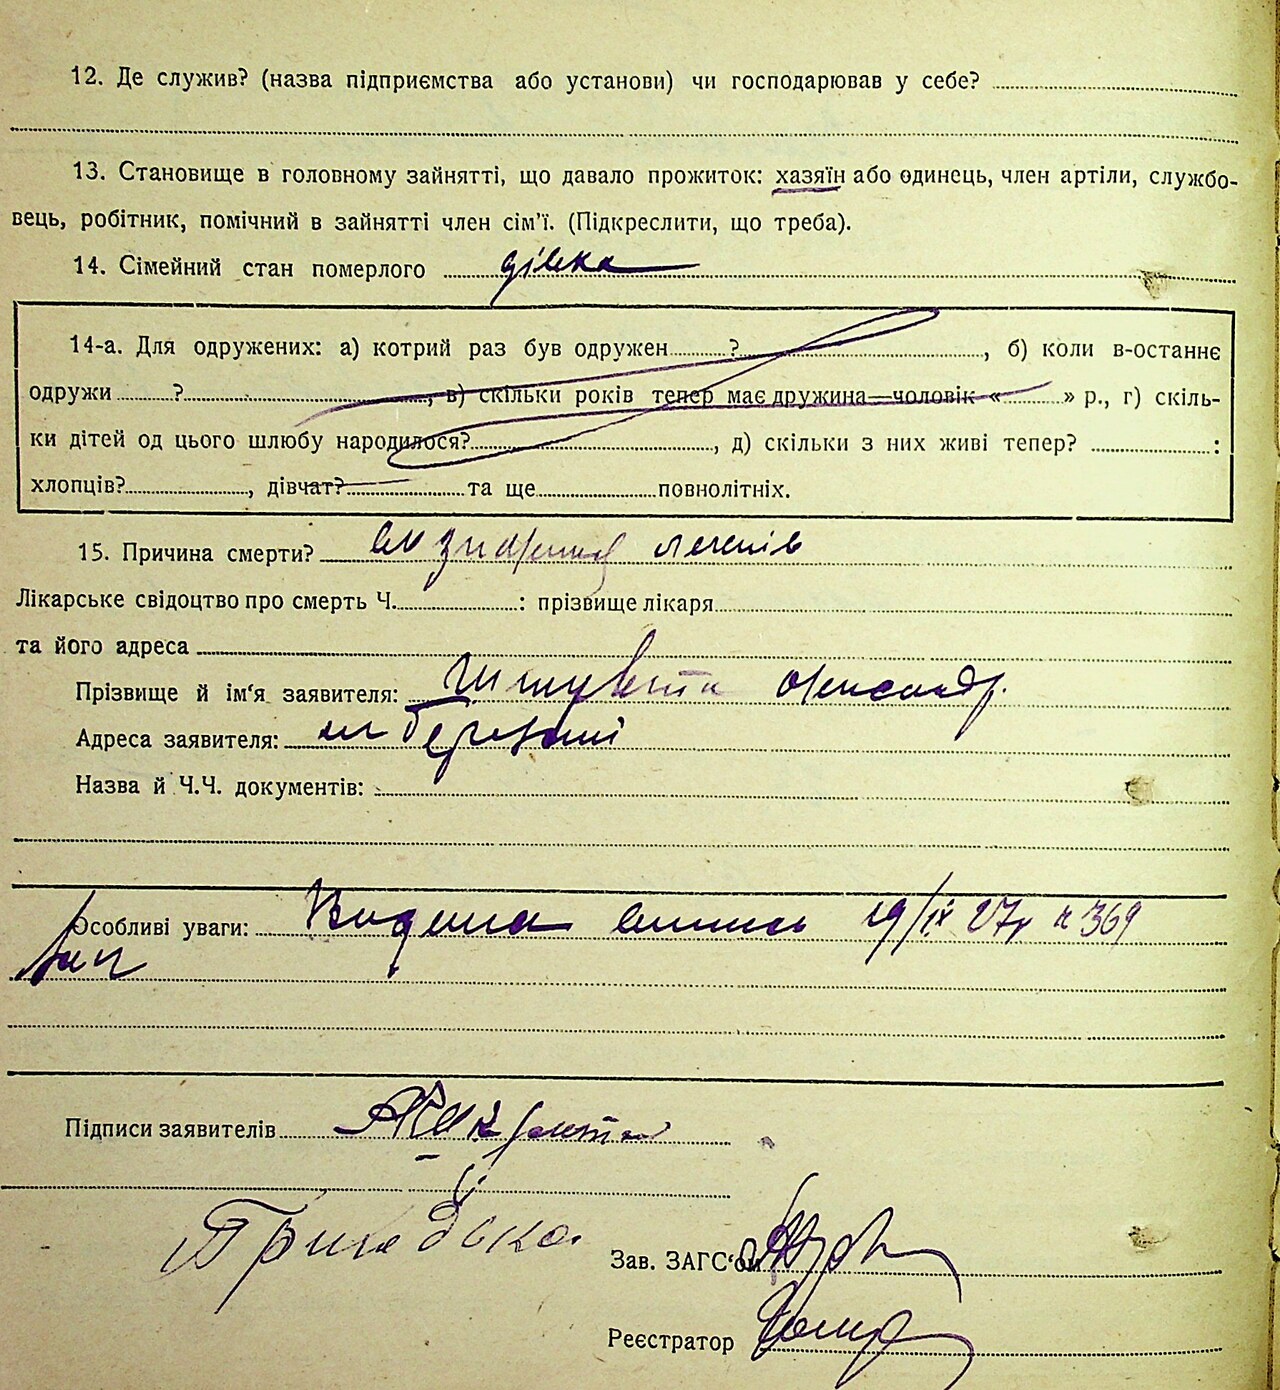 12. Де служив? (назва підприємства або установи) чи господарював у себе?
13. Становище в головному зайнятті, що давало прожиток: хазяїн або одинець, член артіли, службо-
вець, робітник, помічний в зайнятті член сім'ї. (Підкреслити, що треба).
14. Сімейний стан померлого дівка
14-а. Для одружених: а) котрий раз був одружен ? , б) коли в-останнє
одружи ? , в) скільки років тепер має дружина—чоловік « » р., г) скіль-
ки дітей од цього шлюбу народилося? , д) скільки з них живі тепер? :
хлопців? , дівчат? та ще повнолітніх.
15. Причина смерти? легенів
Лікарське свідоцтво про смерть Ч. : прізвище лікаря
та його адреса
Прізвище й ім'я заявителя: Олександр.
Адреса заявителя: м Березані
Назва й Ч.Ч. документів:
Особливі уваги: Видана 19/IX 27р № 369
Підписи заявителів
Зав. ЗАГС'ом
Реєстратор